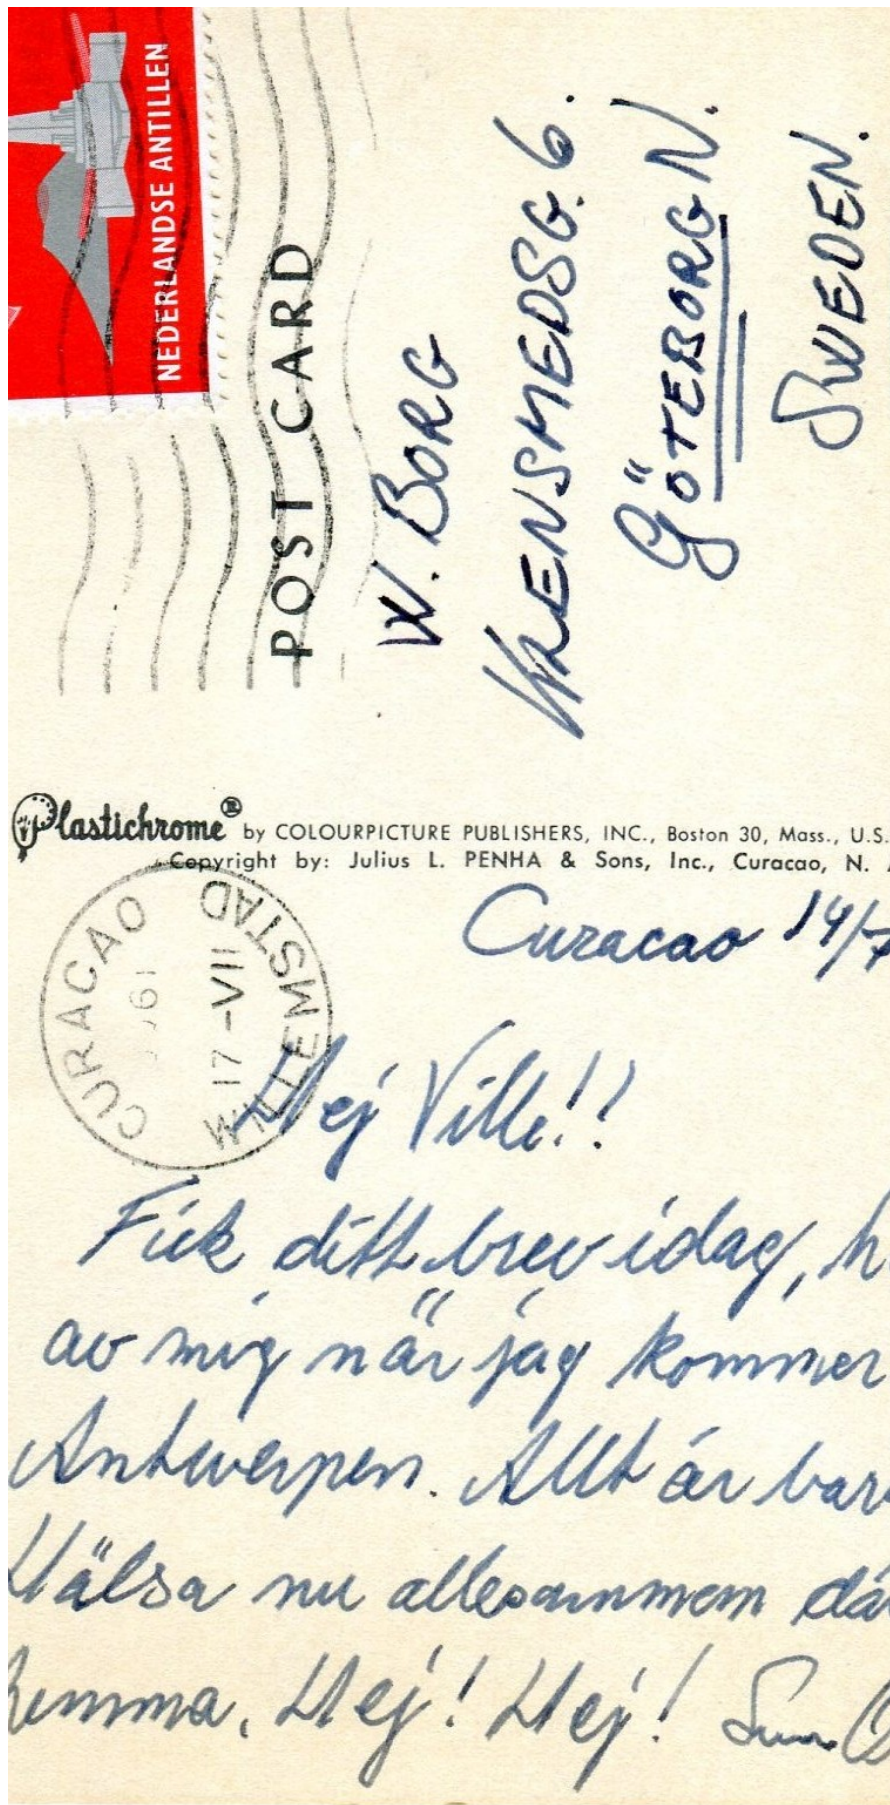 NEDERLANDSE ANTILLEN
POST CARD
W. BORG
KLENSMEDSG. 6.
GÖTEBORG N.
SWEDEN.
Plastichrome® by COLOURPICTURE PUBLISHERS, INC., Boston 30, Mass., U.S.
Copyright by: Julius L. PENHA & Sons, Inc., Curacao, N.
CURACAO
1961
17-VII
WILLEMSTAD
Curacao 14/7
Hej Ville!!
Fick ditt brev idag, h
av mig när jag kommer
Antwerpen. Allt är bar
Hälsa nu allesammem där
hemma. Hej! Hej!